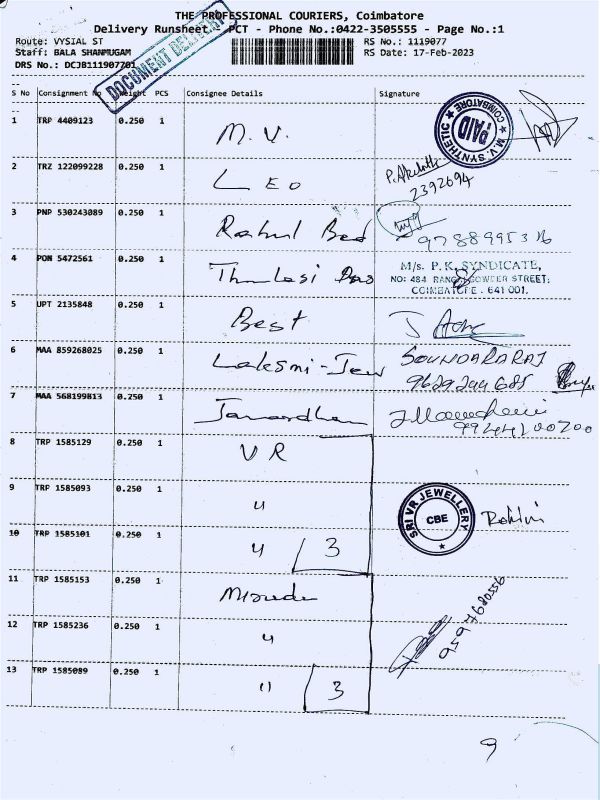 THE PROFESSIONAL COURIERS, Coimbatore
Delivery Runsheet - PCT - Phone No.:0422-3505555 - Page No.:1
Route: VYSIAL ST RS No.: 1119077
Staff: BALA SHANMUGAM RS Date: 17-Feb-2023
DRS No.: DCJB111907701
DOCUMENT DELIVERY
S No Consignment No Weight PCS Consignee Details Signature
1 TRP 4409123 0.250 1 M. V.
M.V. SYNTHETIC COIMBATORE PAID
2 TRZ 122099228 0.250 1 LEO
2392694
3 PNP 530243089 0.250 1 Rahul
4 PON 5472561 0.250 1 Thulasi
M/s. P. K. SYNDICATE,
NO: 484 GOWDER STREET;
COIMBATORE - 641 001.
5 UPT 2135848 0.250 1 Best
6 MAA 859268025 0.250 1 Laksmi-Jew SOUNDARARAJ
9629244685
7 MAA 568199813 0.250 1 Janardhan
8 TRP 1585129 0.250 1 VR
9 TRP 1585093 0.250 1 "
SRI VR JEWELLERY CBE
10 TRP 1585101 0.250 1 " 3
11 TRP 1585153 0.250 1
12 TRP 1585236 0.250 1 "
9597680556
13 TRP 1585089 0.250 1 " 3
9